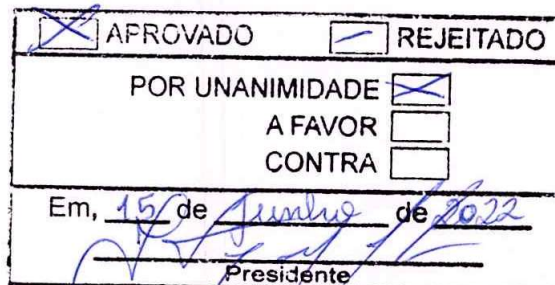 APROVADO REJEITADO
POR UNANIMIDADE
A FAVOR
CONTRA
Em, 15 de Junho de 2022
Presidente